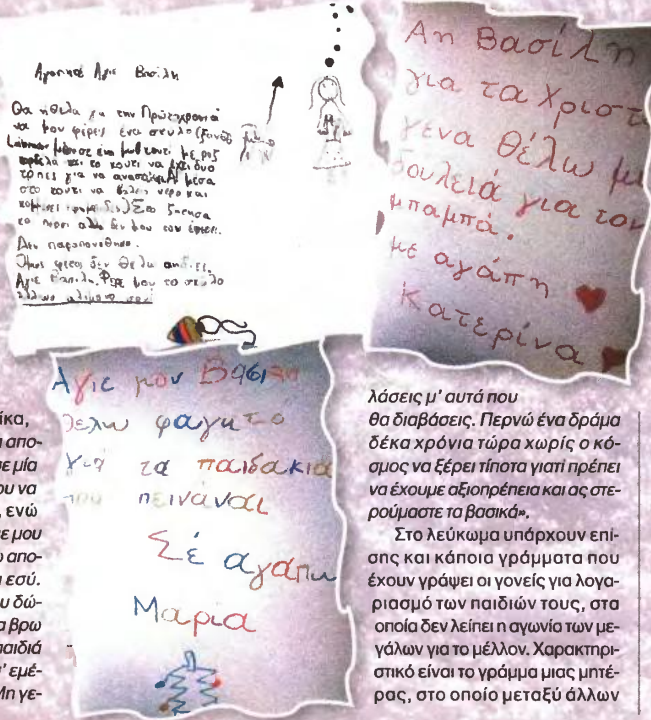 Αγαπητέ Άγιε Βασίλη
Θα ήθελα για την Πρωτοχρονιά
να μου φέρεις ένα σκυλο (ξανθό
κορδέλα και το κουτί να έχει δυο
τρύπες για να αναπνέει Α! μέσα
στο κουτι να βάλεις νερό και
Στο ζήτησα
το περσι αλλά δεν μου τον έφερες.
Δεν παραπονέθηκα.
Όμως φέτος δεν θέλω
Αγιε Βασιλη. Φερε μου το σκύλο
αλίμονο σου!
Αη Βασίλη
για τα Χριστ
γενα θέλω μι
δουλειά για τον
μπαμπά.
με αγάπη
Κατερίνα
Αγιε μου Βασιλη
θελω φαγητό
για τα παιδάκια
που πεινάναι
Σέ αγαπω
Μαρία
ίκα,
απο-
ε μία
ου να
, ενώ
ε μου
απο-
εσύ.
υ δώ-
α βρω
παιδιά
' εμέ-
Μη γε-
λάσεις μ' αυτά που
θα διαβάσεις. Περνώ ένα δράμα
δέκα χρόνια τώρα χωρίς ο κό-
σμος να ξέρει τίποτα γιατί πρέπει
να έχουμε αξιοπρέπεια και ας στε-
ρούμαστε τα βασικά».
Στο λεύκωμα υπάρχουν επί-
σης και κάποια γράμματα που
έχουν γράψει οι γονείς για λογα-
ριασμό των παιδιών τους, στα
οποία δεν λείπει η αγωνία των με-
γάλων για το μέλλον. Χαρακτηρι-
στικό είναι το γράμμα μιας μητέ-
ρας, στο οποίο μεταξύ άλλων